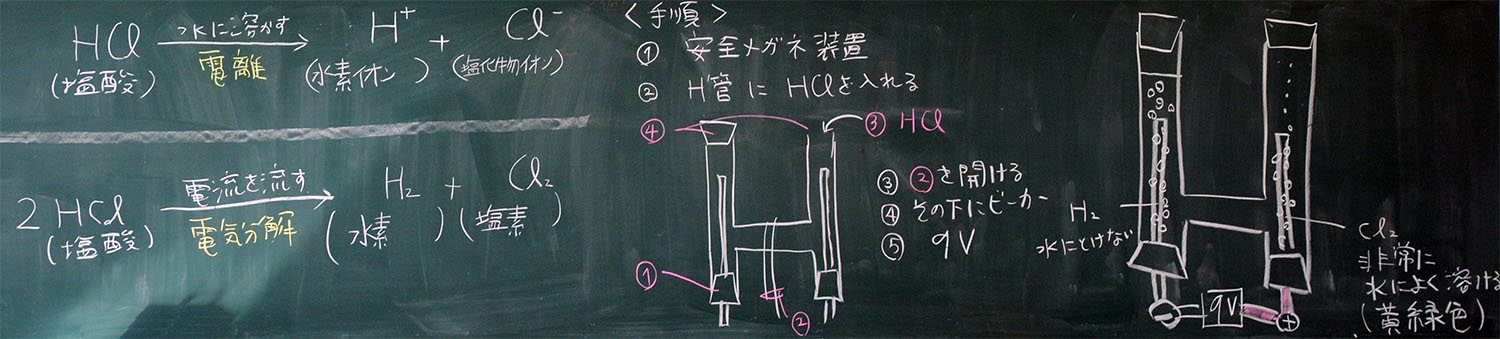 HCl 水に溶かす H⁺ + Cl⁻
(塩酸) 電離 (水素イオン) (塩化物イオン)
2HCl 電流を流す H₂ + Cl₂
(塩酸) 電気分解 (水素) (塩素)
<手順>
① 安全メガネ装置
② H管にHClを入れる
④ ③ HCl
①
②
③ ②を開ける
④ その下にビーカー
⑤ 9V
H₂
水にとけない
⊖ 9V ⊕
Cl₂
非常に
水によく溶ける
(黄緑色)